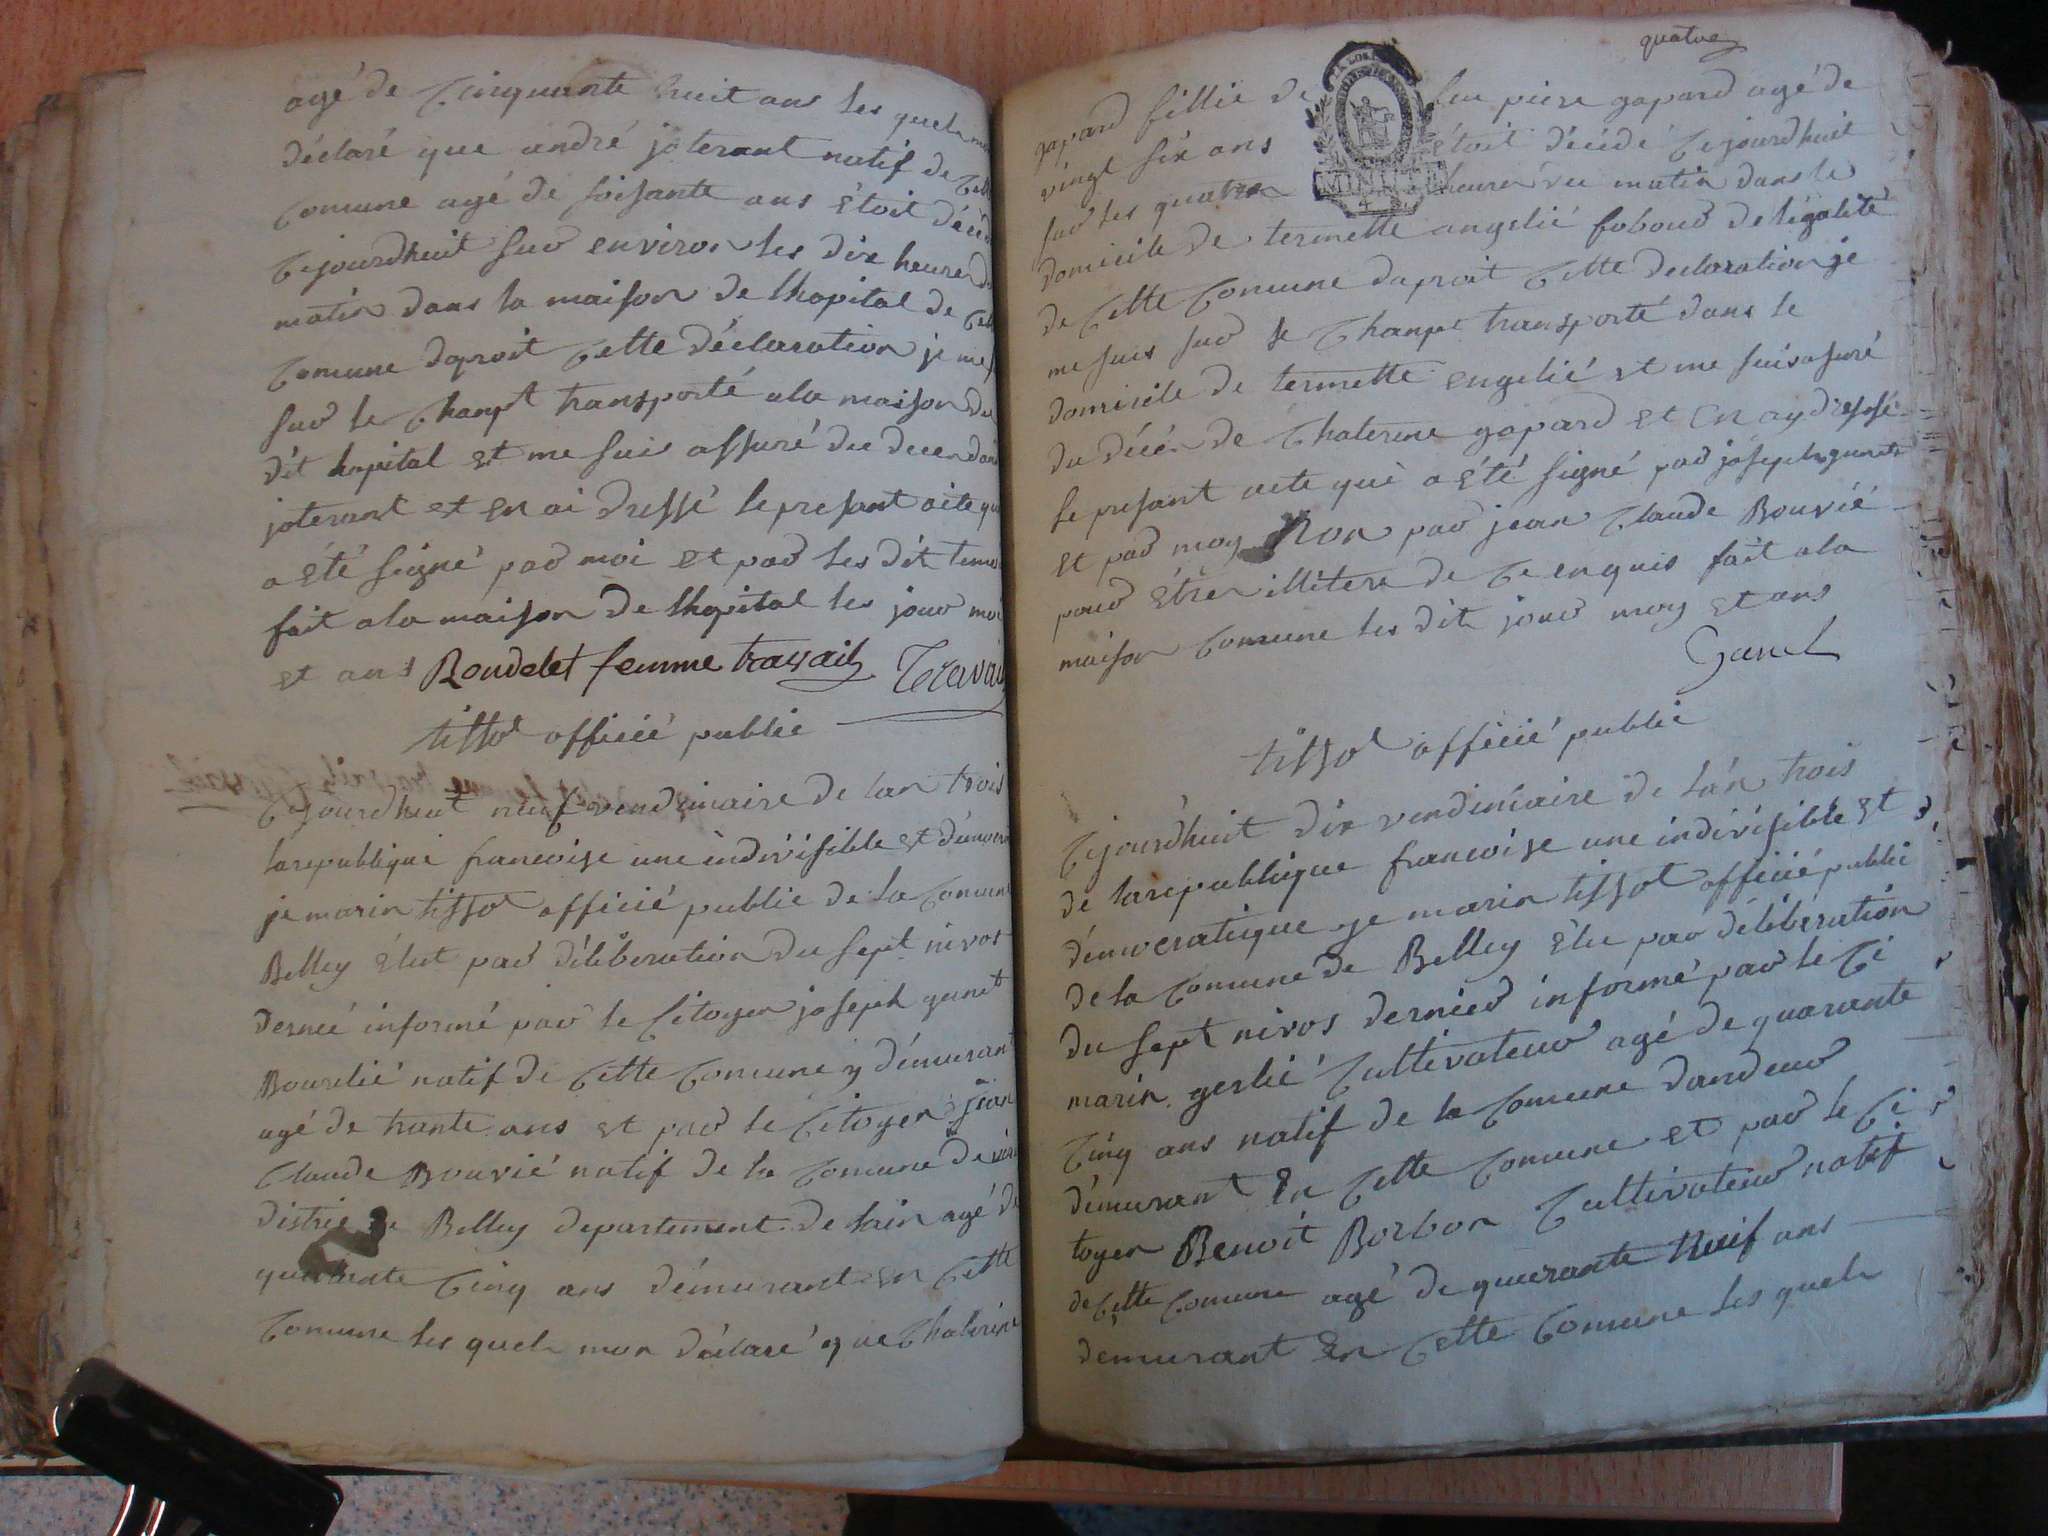 agé de Cinquante huit ans les quels mon
déclaré que andré joterant natif de Cette
Comune agé de soisante ans étoit décéd
Cejourdhuit sur environ les dix heures du
matin dans la maison de lhopital de Cette
Comune daproit Cette déclaration je me s
sur le Chanpt transporté ala maison du
dit hopital et me suis assuré du deces dan
joterant et en ai dressé le presant acte qui
a été signé par moi et par les dit temo
fait ala maison de lhopital les jour moi
et ans Roudelet femme travail Travail
tissot officié public
Cejourdhuit neuf vendimaire de lan trois
la republique francoise une indivisible et démocra
je marin tissot officié public de la Comune
Belley élut par déliberation du sept nivos
dernié informé par le Citoyen joseph gunet
Bourelié natif de Cette Comune y démurant
agé de trante ans et par le Citoyen jean
Claude Bouvié natif de la Comune de
district de Belley departement de lain agé de
quarante Cinq ans démurant en Cette
Comune les quels mon déclaré que Chaterine
quatre
gapard fillie de feu piere gapard agé de
vingt six ans étoit décédé Cejourdhuit
sur les quatres heures du matin dans le
domicile de termette angelié fobour de légalité
de Cette Comune daproit Cette declaration je
me suis sur le Chanpt transporté dans le
domicile de termette engelié et me suis asuré
du décés de Chaterine gapard et en ay dressé
le presant acte qui a été signé par joseph gunet
et par moy Non par jean Claude Bouvié
pour étre illitere de Ce enquis fait ala
maison Comune les dit jour moy et ans
Ganel
tissot officié public
MINUTE
Cejourdhuit dix vendimiaire de lan trois
de la republique francoise une indivisible et
démocratique je marin tissot officié public
de la Comune de Belley élu par déliberation
du sept nivos dernier informé par le Ci
marin gerlié Cultivateur agé de quarante
Cinq ans natif de la Comune dandeur
démurant En Cette Comune et par le Ci
toyen Benoit Borbon Cultivateur natif
de Cette Comune agé de quarante Neuf ans
démurant En Cette Comune les quels